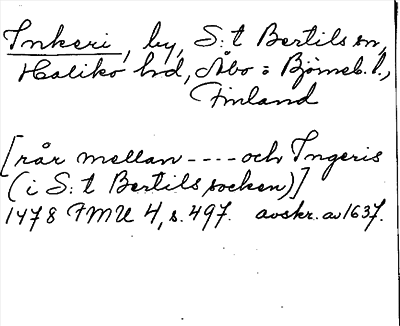 Inkeri, by, S:t Bertils sn,
Haliko hd, Åbo o Björneb. l.,
Finland
[rår mellan ---- och Ingeris
(i S:t Bertils socken)]
1478 FMU 4, s. 497. avskr. av 1637.